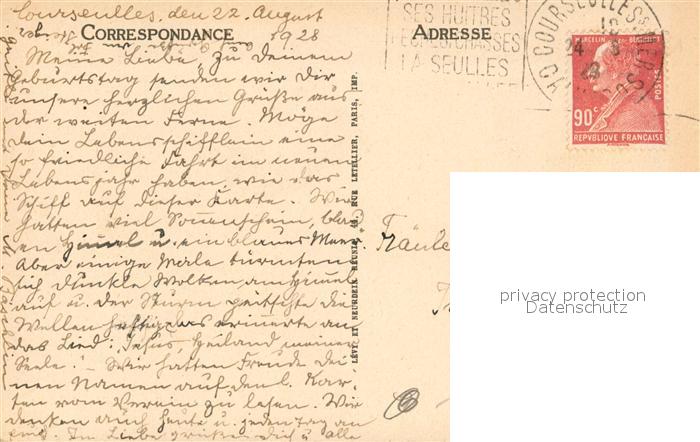 Courseulles, den 22. August
1928
CORRESPONDANCE
Meine Liebe, zu Deinem
Geburtstag senden wir Dir
unsere herzlichen Grüße aus
der weiten Ferne. Möge
dein Lebensschifflein eine
so friedliche Fahrt im neuen
Lebensjahr haben, wie das
Schiff auf dieser Karte. Wir
hatten viel Sonnenschein, blau
en Himmel u. ein blaues Meer.
Aber einige Male türmten
sich dunkle Wolken am Himmel
auf u. der Sturm peitschte die
Wellen heftig, das erinnerte an
das Lied: "Jesus, Heiland meiner
Seele." – Wir hatten Freude Dei
nen Namen auf der l. Kar-
ten vom Verein zu lesen. Wir
denken auch heute u. jeden Tag an
Im Liebe grüßen Dich u. alle
LÉVY ET NEURDEIN RÉUNIS, 44, RUE LETELLIER, PARIS, IMP.
ADRESSE
SES HUITRES
SES CHASSES
LA SEULLES
COURSEULLES S MER
24 - 8
28
MARCELIN BERTHELOT
POSTES
90c
REPVBLIQVE FRANÇAISE
Fräule
privacy protection
Datenschutz